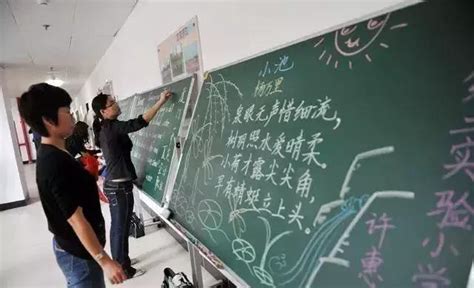 小池
杨万里
泉眼无声惜细流，
树阴照水爱晴柔。
小荷才露尖尖角，
早有蜻蜓立上头。
实验小学
许惠